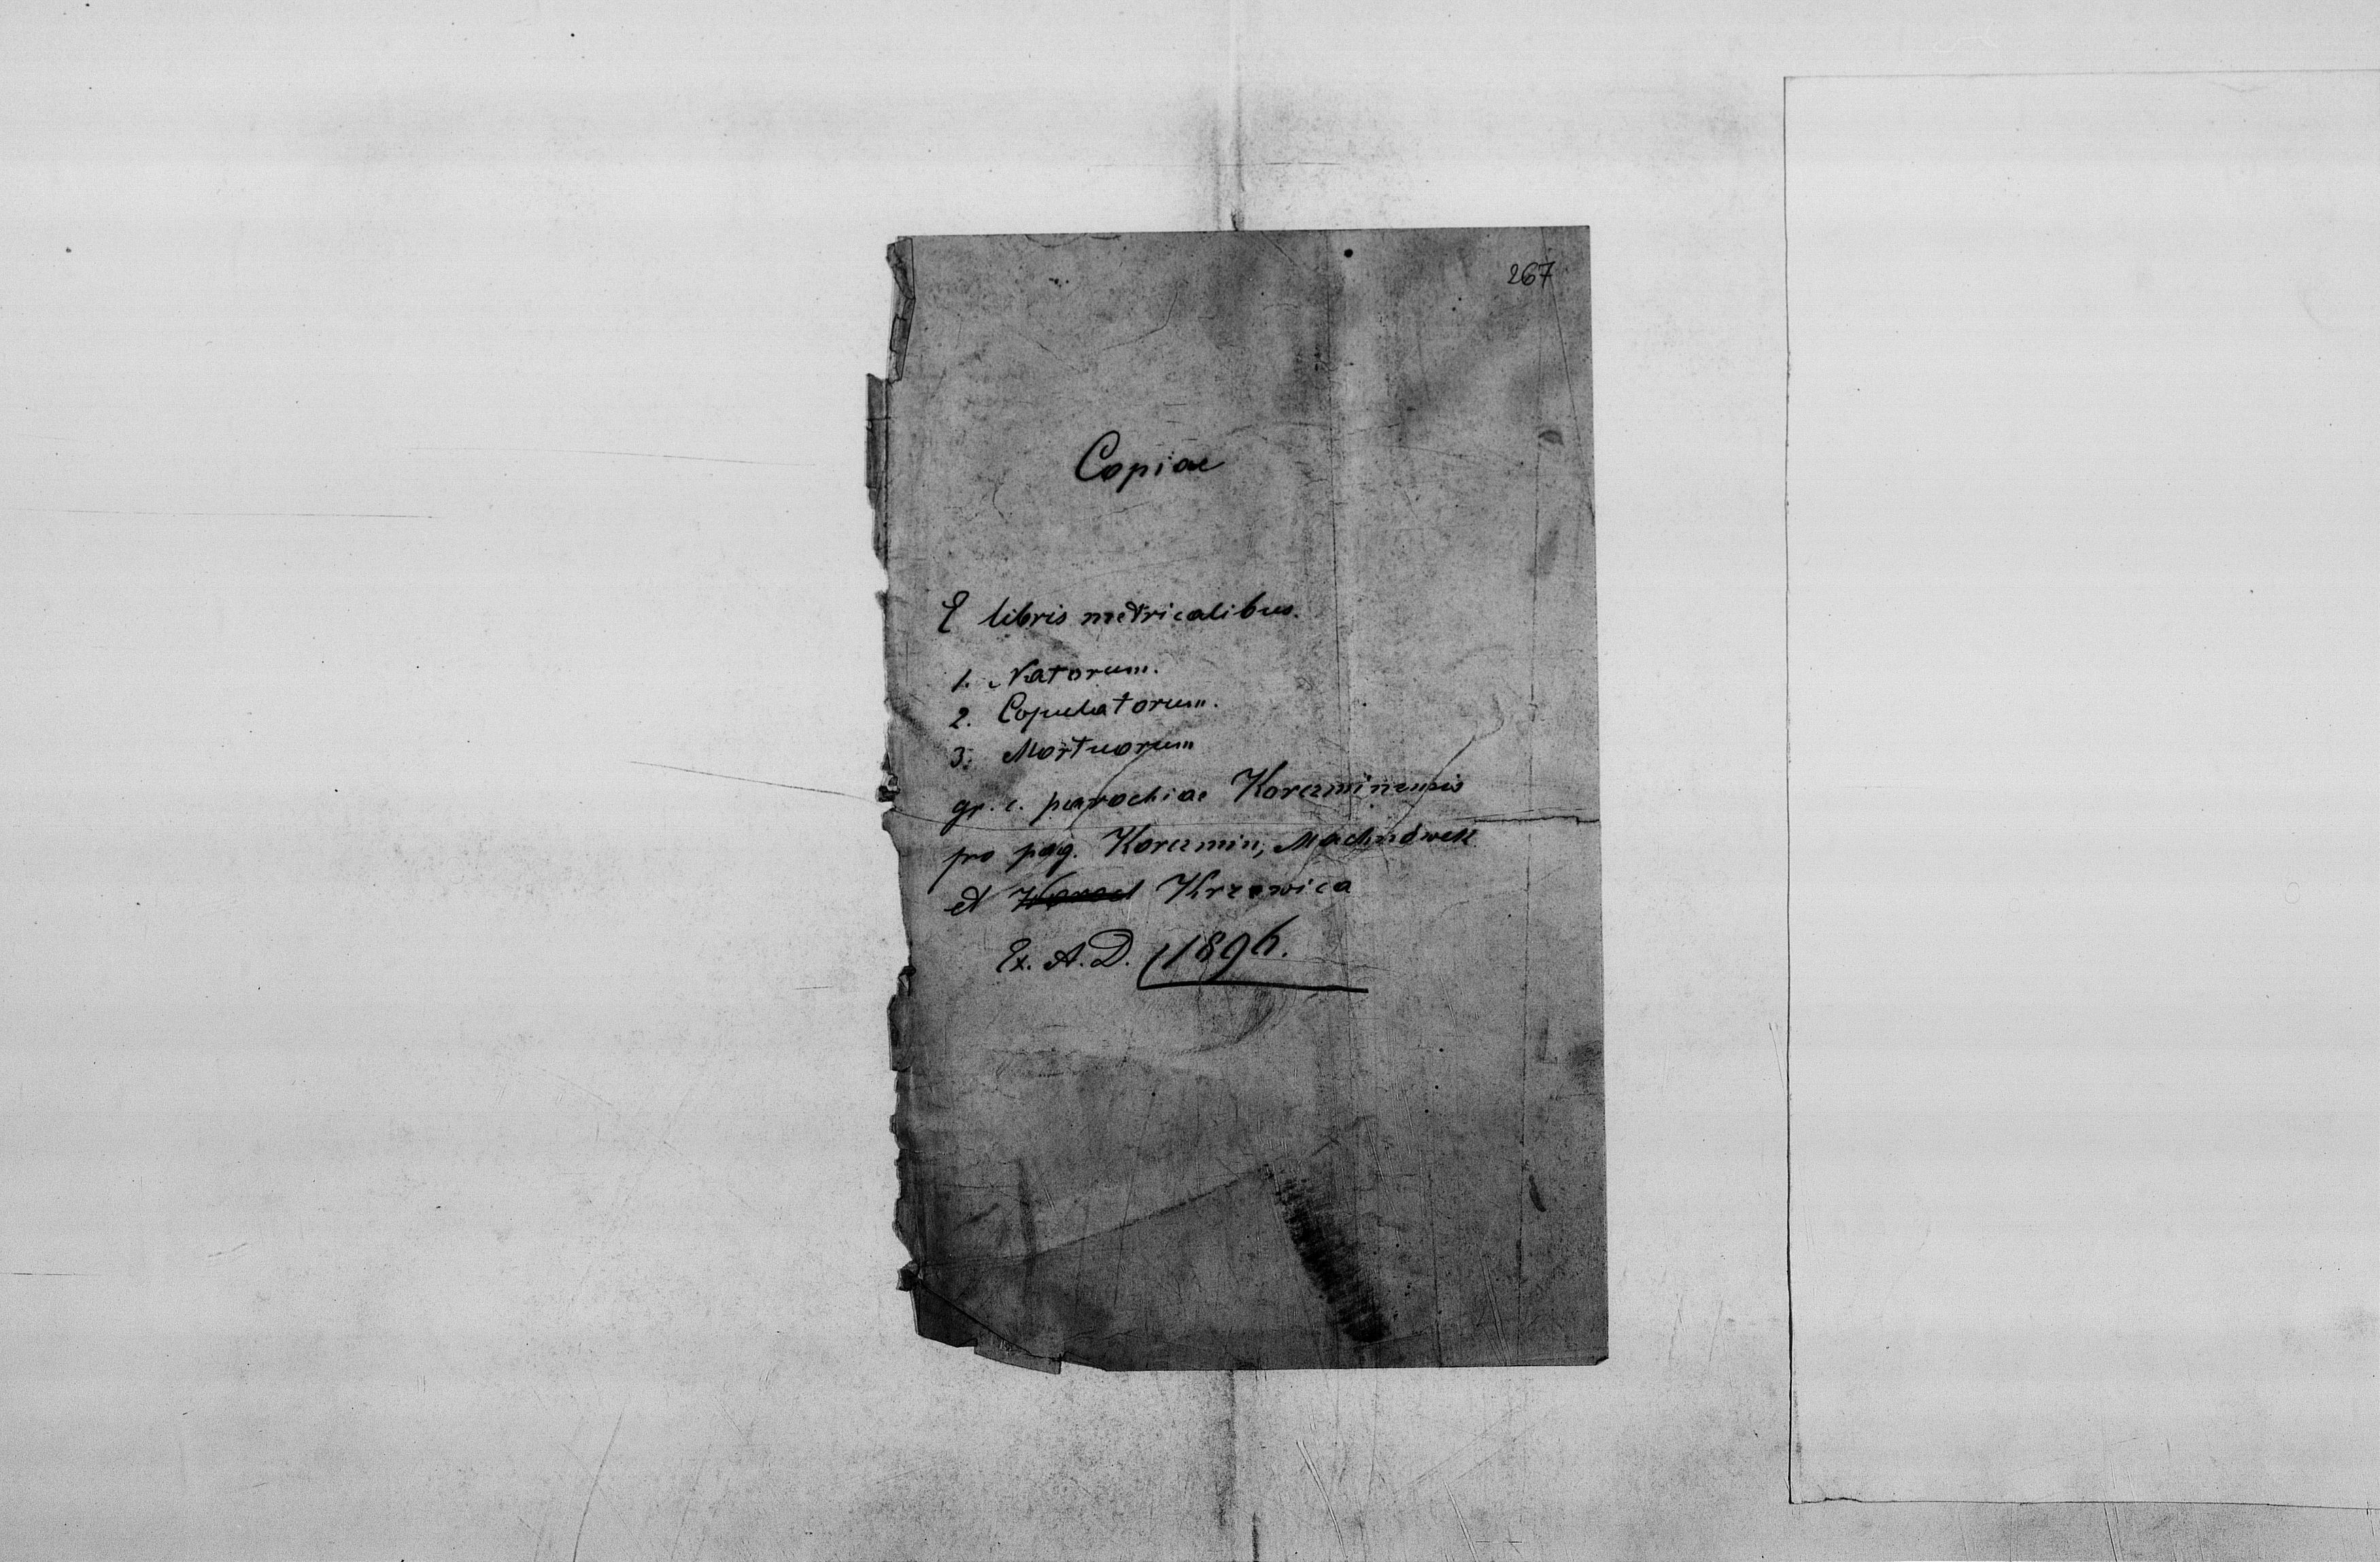 267
Copiae
E libris metricalibus.
1. Natorum.
2. Copulatorum.
3. Mortuorum
gr. c. parochiae Korczminensis
pro pag. Korczmin, Machnówek
et Krzewica
Ex. A.D. 1896.